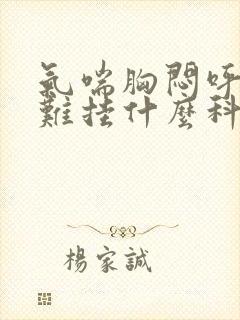 氣喘胸悶呼
難挂什麼科
楊家誠